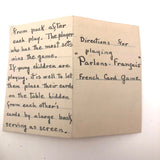 From pack after
each play. The player
who has the most sets
wins the game.
If young children are
playing, it is well to let
them place their cards
on the table hidden
from each other's
cards by a large book
serving as screen.
Directions for
playing
"Parlons Français"
French Card Game